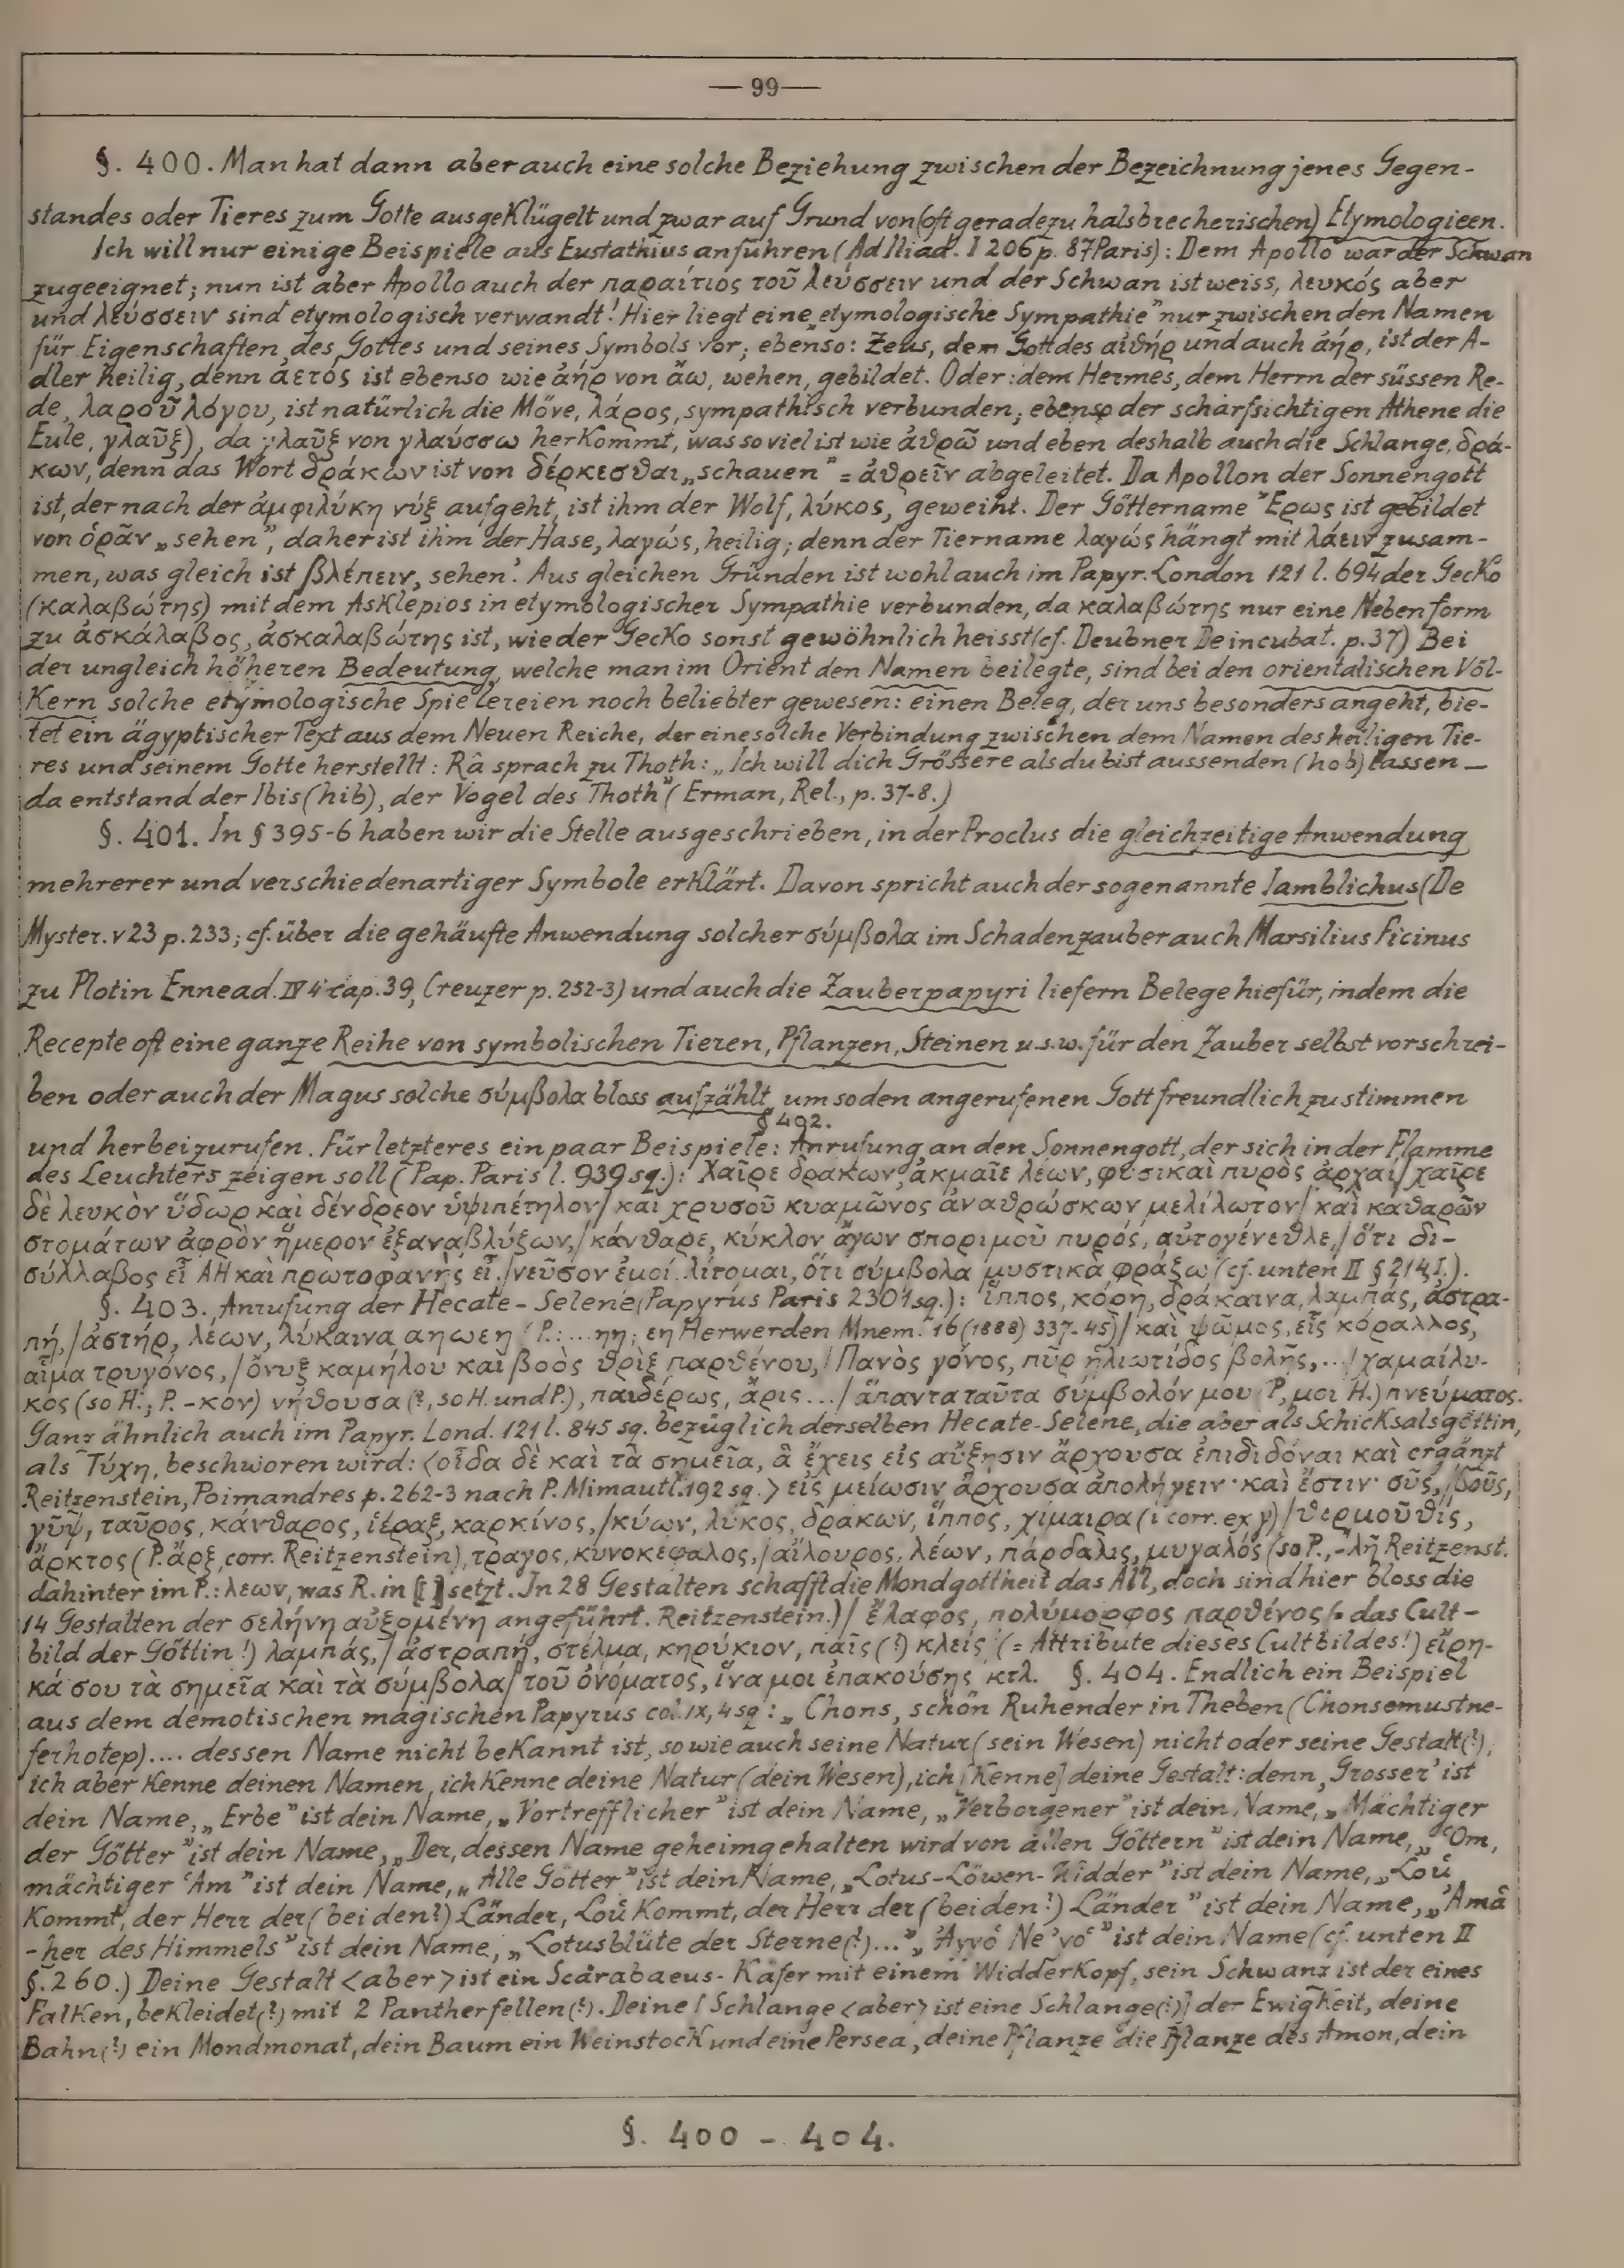 — 99 —
§. 400. Man hat dann aber auch eine solche Beziehung zwischen der Bezeichnung jenes Gegen-
standes oder Tieres zum Gotte ausgeklügelt und zwar auf Grund von (oft geradezu halsbrecherischen) Etymologieen.
Ich will nur einige Beispiele aus Eustathius anführen (Ad Iliad. I 206 p. 87 Paris): Dem Apollo war der Schwan
zugeeignet; nun ist aber Apollo auch der παραίτιος τοῦ λεύσσειν und der Schwan ist weiss, λευκός aber
und λεύσσειν sind etymologisch verwandt! Hier liegt eine „etymologische Sympathie” nur zwischen den Namen
für Eigenschaften des Gottes und seines Symbols vor; ebenso: Zeus, dem Gott des αἰθήρ und auch ἀήρ, ist der A-
dler heilig, denn ἀετός ist ebenso wie ἀήρ von ἄω, wehen, gebildet. Oder: dem Hermes, dem Herrn der süssen Re-
de, λαροῦ λόγου, ist natürlich die Möve, λάρος, sympathisch verbunden; ebenso der scharfsichtigen Athene die
Eule, γλαῦξ), da γλαῦξ von γλαύσσω herkommt, was so viel ist wie ἀθρῶ und eben deshalb auch die Schlange, δρά-
κων, denn das Wort δράκων ist von δέρκεσθαι „schauen” = ἀθρεῖν abgeleitet. Da Apollon der Sonnengott
ist, der nach der ἀμφιλύκη νύξ aufgeht, ist ihm der Wolf, λύκος, geweiht. Der Göttername Ἔρως ist gebildet
von ὁρᾶν „sehen”, daher ist ihm der Hase, λαγώς, heilig; denn der Tiername λαγώς hängt mit λάειν zusam-
men, was gleich ist βλέπειν, sehen’. Aus gleichen Gründen ist wohl auch im Papyr. London 121 l. 694 der Gecko
(καλαβώτης) mit dem Asklepios in etymologischer Sympathie verbunden, da καλαβώτης nur eine Nebenform
zu ἀσκάλαβος, ἀσκαλαβώτης ist, wie der Gecko sonst gewöhnlich heisst (cf. Deubner De incubat. p. 37) Bei
der ungleich höheren Bedeutung, welche man im Orient den Namen beilegte, sind bei den orientalischen Völ-
kern solche etymologische Spielereien noch beliebter gewesen: einen Beleg, der uns besonders angeht, bie-
tet ein ägyptischer Text aus dem Neuen Reiche, der eine solche Verbindung zwischen dem Namen des heiligen Tie-
res und seinem Gotte herstellt: Râ sprach zu Thoth: „Ich will dich Grössere als du bist aussenden (hob) lassen —
da entstand der Ibis (hib), der Vogel des Thoth” (Erman, Rel., p. 37-8.)
§. 401. In § 395-6 haben wir die Stelle ausgeschrieben, in der Proclus die gleichzeitige Anwendung
mehrerer und verschiedenartiger Symbole erklärt. Davon spricht auch der sogenannte Iamblichus (De
Myster. V 23 p. 233; cf. über die gehäufte Anwendung solcher σύμβολα im Schadenzauber auch Marsilius Ficinus
zu Plotin Ennead. IV 4 cap. 39, Creuzer p. 252-3) und auch die Zauberpapyri liefern Belege hiefür, indem die
Recepte oft eine ganze Reihe von symbolischen Tieren, Pflanzen, Steinen u.s.w. für den Zauber selbst vorschrei-
ben oder auch der Magus solche σύμβολα bloss aufzählt, um so den angerufenen Gott freundlich zu stimmen
§ 402.
und herbeizurufen. Für letzteres ein paar Beispiele: Anrufung an den Sonnengott, der sich in der Flamme
des Leuchters zeigen soll (Pap. Paris l. 939 sq.): Χαῖρε δράκων, ἀκμαῖε λέων, φυσικαὶ πυρὸς ἀρχαί / χαῖρε
δὲ λευκὸν ὕδωρ καὶ δένδρεον ὑψιπέτηλον / καὶ χρυσοῦ κυαμῶνος ἀναθρώσκων μελίλωτον / καὶ καθαρῶν
στομάτων ἀφρὸν ἥμερον ἐξαναβλύξων, / κάνθαρε, κύκλον ἄγων σπορίμου πυρός, αὐτογένεθλε, / ὅτι δι-
σύλλαβος εἶ ΑΗ καὶ πρωτοφανὴς εἶ. / νεῦσον ἐμοί, λίτομαι, ὅτι σύμβολα μυστικὰ φράξω (cf. unten II § 214 I.).
§. 403. Anrufung der Hecate-Selene (Papyrus Paris 2301 sq.): ἵππος, κόρη, δράκαινα, λαμπάς, ἀστρα-
πή, / ἀστήρ, λέων, λύκαινα αηωεη (P.: ... ηη; εη Herwerden Mnem. 16 (1888) 337-45) / καὶ ψῶμος, εἷς κόραλλος,
αἷμα τρυγόνος, / ὄνυξ καμήλου καὶ βοὸς θρὶξ παρθένου, / Πανὸς γόνος, πῦρ ἡλιωτίδος βολῆς, ... / χαμαίλυ-
κος (so H.; P. -κον) νήθουσα (?, so H. und P.), παιδέρως, ἄρις ... / ἅπαντα ταῦτα σύμβολόν μου (P, μοι H.) πνεύματος.
Ganz ähnlich auch im Papyr. Lond. 121 l. 845 sq. bezüglich derselben Hecate-Selene, die aber als Schicksalsgöttin,
als Τύχη, beschworen wird: ⟨οἶδα δὲ καὶ τὰ σημεῖα, ἃ ἔχεις εἰς αὔξησιν ἄρχουσα ἐπιδιδόναι καὶ ergänzt
Reitzenstein, Poimandres p. 262-3 nach P. Mimaut l. 192 sq.⟩ εἰς μείωσιν ἄρχουσα ἀπολήγειν· καὶ ἔστιν· σῦς, / βοῦς,
γῦψ, ταῦρος, κάνθαρος, ἱέραξ, καρκίνος, / κύων, λύκος, δράκων, ἵππος, χίμαιρα (ι corr. ex γ) / θερμοῦθις,
ἄρκτος (P. ἄρξ, corr. Reitzenstein), τράγος, κυνοκέφαλος, / αἴλουρος, λέων, πάρδαλις, μυγαλός (so P., -λῆ Reitzenst.
dahinter im P.: λεων, was R. in [ ] setzt. In 28 Gestalten schafft die Mondgottheit das All, doch sind hier bloss die
14 Gestalten der σελήνη αὐξομένη angeführt. Reitzenstein.) / ἔλαφος, πολύμορφος παρθένος (= das Cult-
bild der Göttin!) λαμπάς, / ἀστραπή, στέλμα, κηρύκιον, παῖς (!) κλείς (= Attribute dieses Cultbildes!) εἴρη-
κά σου τὰ σημεῖα καὶ τὰ σύμβολα / τοῦ ὀνόματος, ἵνα μοι ἐπακούσῃς κτλ. §. 404. Endlich ein Beispiel
aus dem demotischen magischen Papyrus col. IX, 4 sq: „Chons, schön Ruhender in Theben (Chonsemustne-
ferhotep).... dessen Name nicht bekannt ist, sowie auch seine Natur (sein Wesen) nicht oder seine Gestalt (!),
ich aber kenne deinen Namen, ich kenne deine Natur (dein Wesen), ich [kenne] deine Gestalt: denn ‚Grosser’ ist
dein Name, „Erbe” ist dein Name, „Vortrefflicher” ist dein Name, „Verborgener” ist dein Name, „Mächtiger
der Götter” ist dein Name, „Der, dessen Name geheimgehalten wird von allen Göttern” ist dein Name, „‘Om,
mächtiger ‘Am” ist dein Name, „Alle Götter” ist dein Name, „Lotus-Löwen-Widder” ist dein Name, „Loû
kommt, der Herr der (beiden?) Länder, Loû kommt, der Herr der (beiden?) Länder” ist dein Name, „’Amâ
-her des Himmels” ist dein Name, „Lotusblüte der Sterne (!)...” ist dein Name (cf. unten II
§. 260.) Deine Gestalt <aber> ist ein Scarabaeus-Käfer mit einem Widderkopf, sein Schwanz ist der eines
Falken, bekleidet (!) mit 2 Pantherfellen (!). Deine [Schlange <aber> ist eine Schlange (!)] der Ewigkeit, deine
Bahn (!) ein Mondmonat, dein Baum ein Weinstock und eine Persea, deine Pflanze die Pflanze des Amon, dein
§. 400 - 404.